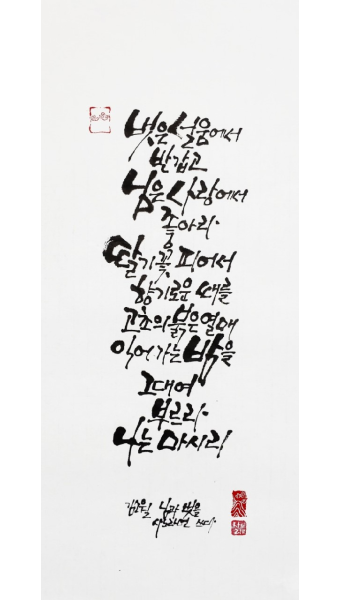 벗은 설움에서
반갑고
님은 사랑에서
좋아라.
딸기꽃 피어서
향기로운 때를
고초의 붉은 열매
익어가는 밤을
그대여
부르라.
나는 마시리
김소월 님과 벗을
쓰다.